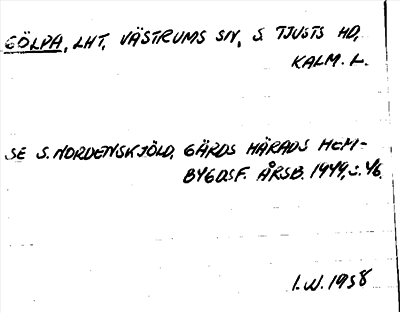 GÖLPA, LHT, VÄSTRUMS SN, S. TJUSTS HD,
KALM. L.
SE S. NORDENSKJÖLD, GÄRDS HÄRADS HEM-
BYGDSF. ÅRSB. 1949, S. 46.
I.W. 1958